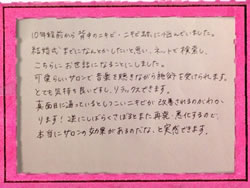 10年程前から背中のニキビ・ニキビ跡に悩んでいました。
結婚式までになんとかしたいと思い、ネットで検索し、
こちらにお世話になることにしました。
可愛らしいサロンで音楽を聴きながら施術を受けられます。
とても気持ち良いですし、リラックスできます。
真面目に通っているとしつこいニキビが改善されるのがわか
ります！逆にしばらくさぼるとまた再発・悪化するので、
本当にサロンの効果があるのだな、と実感できます。